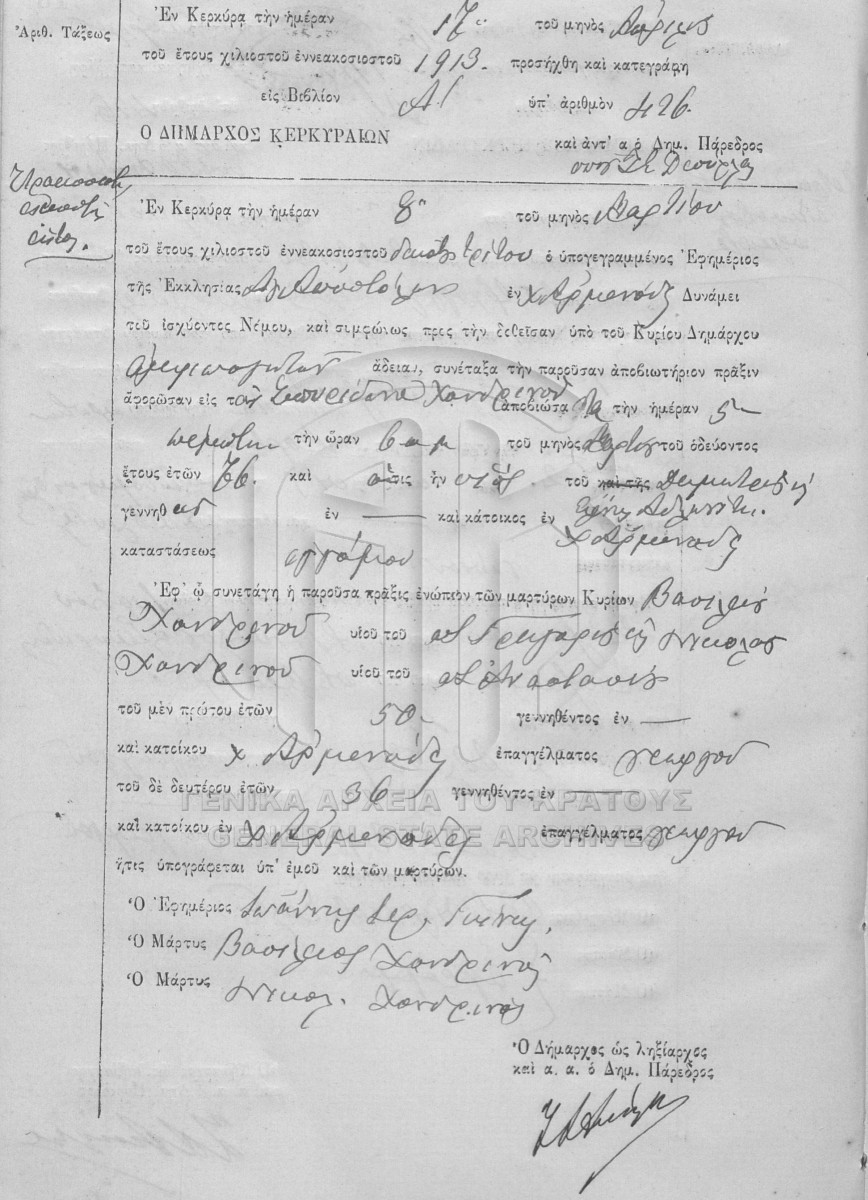 Ἀριθ. Τάξεως
Ἐν Κερκύρᾳ τὴν ἡμέραν 17 τοῦ μηνὸς
τοῦ ἔτους χιλιοστοῦ ἐννεακοσιοστοῦ 1913. προσήχθη καὶ κατεγράφη
εἰς Βιβλίον Αʹ ὑπ' ἀριθμὸν 426.
Ο ΔΗΜΑΡΧΟΣ ΚΕΡΚΥΡΑΙΩΝ
καὶ ἀντ' α ὁ Δημ. Πάρεδρος
Ἐν Κερκύρᾳ τὴν ἡμέραν 8η τοῦ μηνὸς Μαρτίου
τοῦ ἔτους χιλιοστοῦ ἐννεακοσιοστοῦ δεκάτου τρίτου ὁ ὑπογεγραμμένος Ἐφημέριος
τῆς Ἐκκλησίας Ἁγ Ἀποστόλων ἐν χ Ἀρμενάδες Δυνάμει
τοῦ ἰσχύοντος Νόμου, καὶ συμφώνως πρὸς τὴν δοθεῖσαν ὑπὸ τοῦ Κυρίου Δημάρχου
ἄδειαν, συνέταξα τὴν παροῦσαν ἀποβιωτήριον πρᾶξιν
ἀφορῶσαν εἰς τὸν Σπυρίδωνα Χανδρινοῦ ἀποβιώσα τὴν ἡμέραν 5
πέμπτη τὴν ὥραν 6 π μ τοῦ μηνὸς τοῦ ὁδεύοντος
ἔτους ἐτῶν 76. καὶ ὅστις ἦν υἱὸς τοῦ καὶ τῆς Δημητρίου
γεννηθεὶς ἐν — καὶ κάτοικος ἐν χ Ἀρμενάδες
καταστάσεως ἐγγάμου
Ἐφ' ᾧ συνετάγη ἡ παροῦσα πρᾶξις ἐνώπιον τῶν μαρτύρων Κυρίων Βασιλείου
Χανδρινοῦ υἱοῦ τοῦ Γρηγορίου Νικολάου
Χανδρινοῦ υἱοῦ τοῦ Ἀναστασίου
τοῦ μὲν πρώτου ἐτῶν 50 γεννηθέντος ἐν —
καὶ κατοίκου χ Ἀρμενάδες ἐπαγγέλματος γεωργοῦ
τοῦ δὲ δευτέρου ἐτῶν 36 γεννηθέντος ἐν —
ΓΕΝΙΚΑ ΑΡΧΕΙΑ ΤΟΥ ΚΡΑΤΟΥΣ
καὶ κατοίκου ἐν χ Ἀρμενάδες ἐπαγγέλματος γεωργοῦ
GENERAL STATE ARCHIVES
ἥτις ὑπογράφεται ὑπ' ἐμοῦ καὶ τῶν μαρτύρων.
Ὁ Ἐφημέριος Ἰωάννης
Ὁ Μάρτυς Βασίλειος Χανδρινός
Ὁ Μάρτυς Νικολ. Χανδρινός
Ὁ Δήμαρχος ὡς ληξίαρχος
καὶ α. α. ὁ Δημ. Πάρεδρος